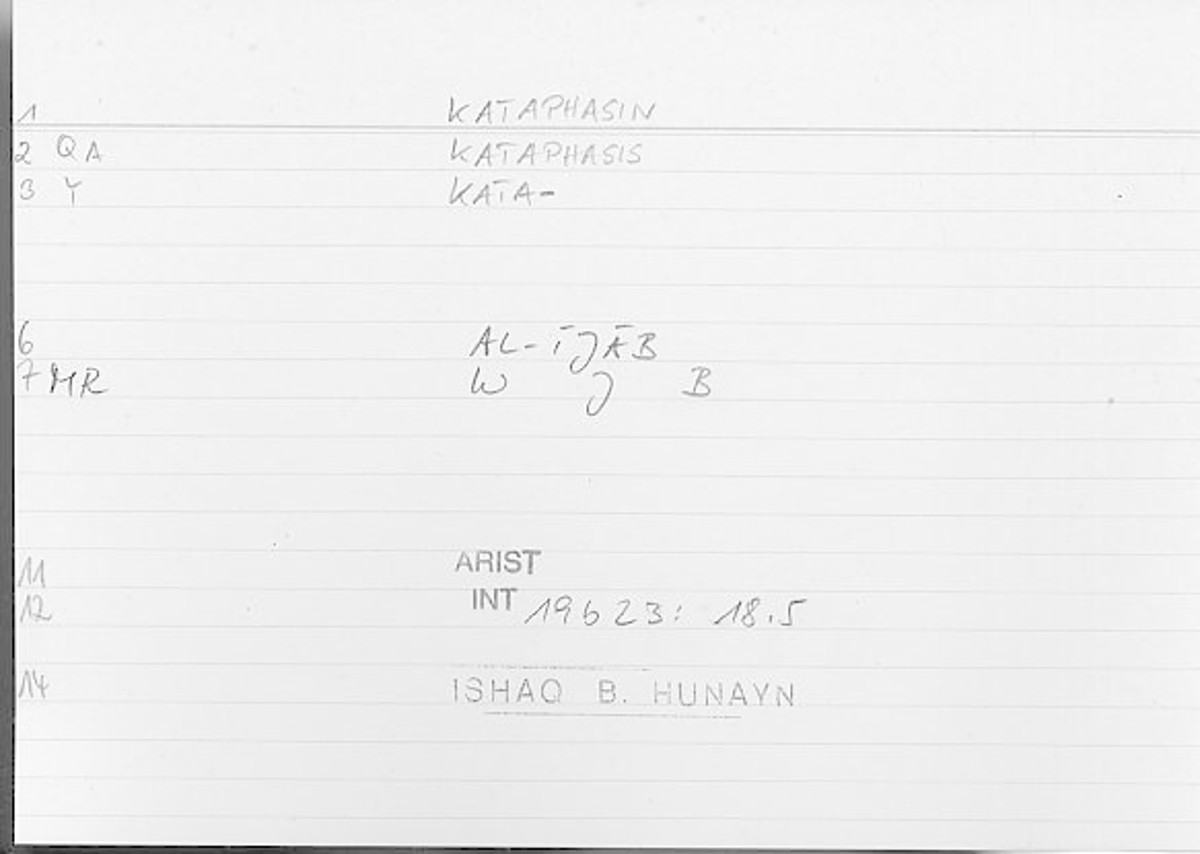 1 KATAPHASIN
2 QA KATAPHASIS
3 Y KATA-
6 AL-ĪJĀB
7 MR W J B
11 ARIST
12 INT 19b23: 18.5
14 ISHAQ B. HUNAYN